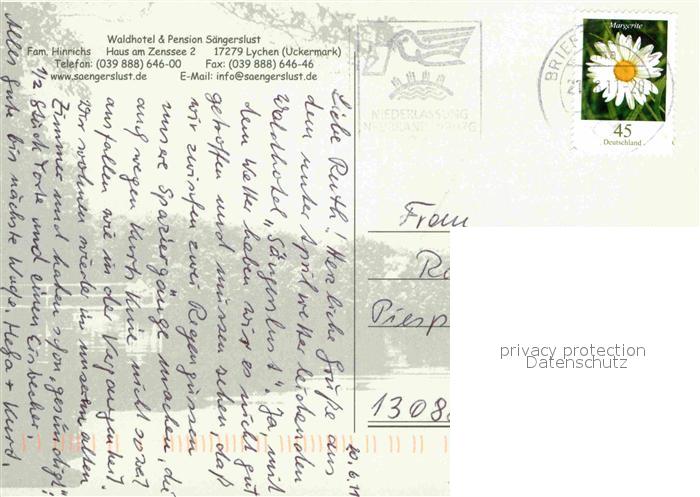 Waldhotel & Pension Sängerslust
Fam. Hinrichs Haus am Zenssee 2 17279 Lychen (Uckermark)
Telefon: (039 888) 646-00 Fax: (039 888) 646-46
www.saengerslust.de E-Mail: info@saengerslust.de
10.6.11
Liebe Ruth! Herzliche Grüße aus
dem unter Aprilwetter leidenden
Waldhotel „Sängerslust". Ja, mit
dem Wetter haben wir es nicht gut
getroffen und müssen sehen, daß
wir zwischen zwei Regengüssen
unsre Spaziergänge machen, die
auch wegen Kurts Knie nicht so weit
ausfallen wie in der Vergangenheit.
Wir wohnen wieder in unserem alten
Zimmer und haben schon „gesündigt":
1/2 Stück Torte und einen Eisbecher.
Alles Gute bis nächste Woche. Helga + Kurd.
NIEDERLASSUNG
NEUBRANDENBURG
BRIEF
21
Margerite
45
Deutschland
Frau
Piesp
1308
privacy protection
Datenschutz